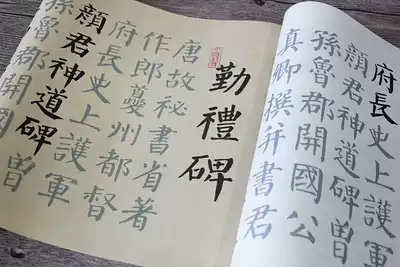 府長史上護軍
顏君神道碑曾
孫魯郡開國公
真卿撰并書君
勤禮碑
唐故秘書省著
作郎夔州都督
府長史上護軍
顏君神道碑曾
孫魯郡開國